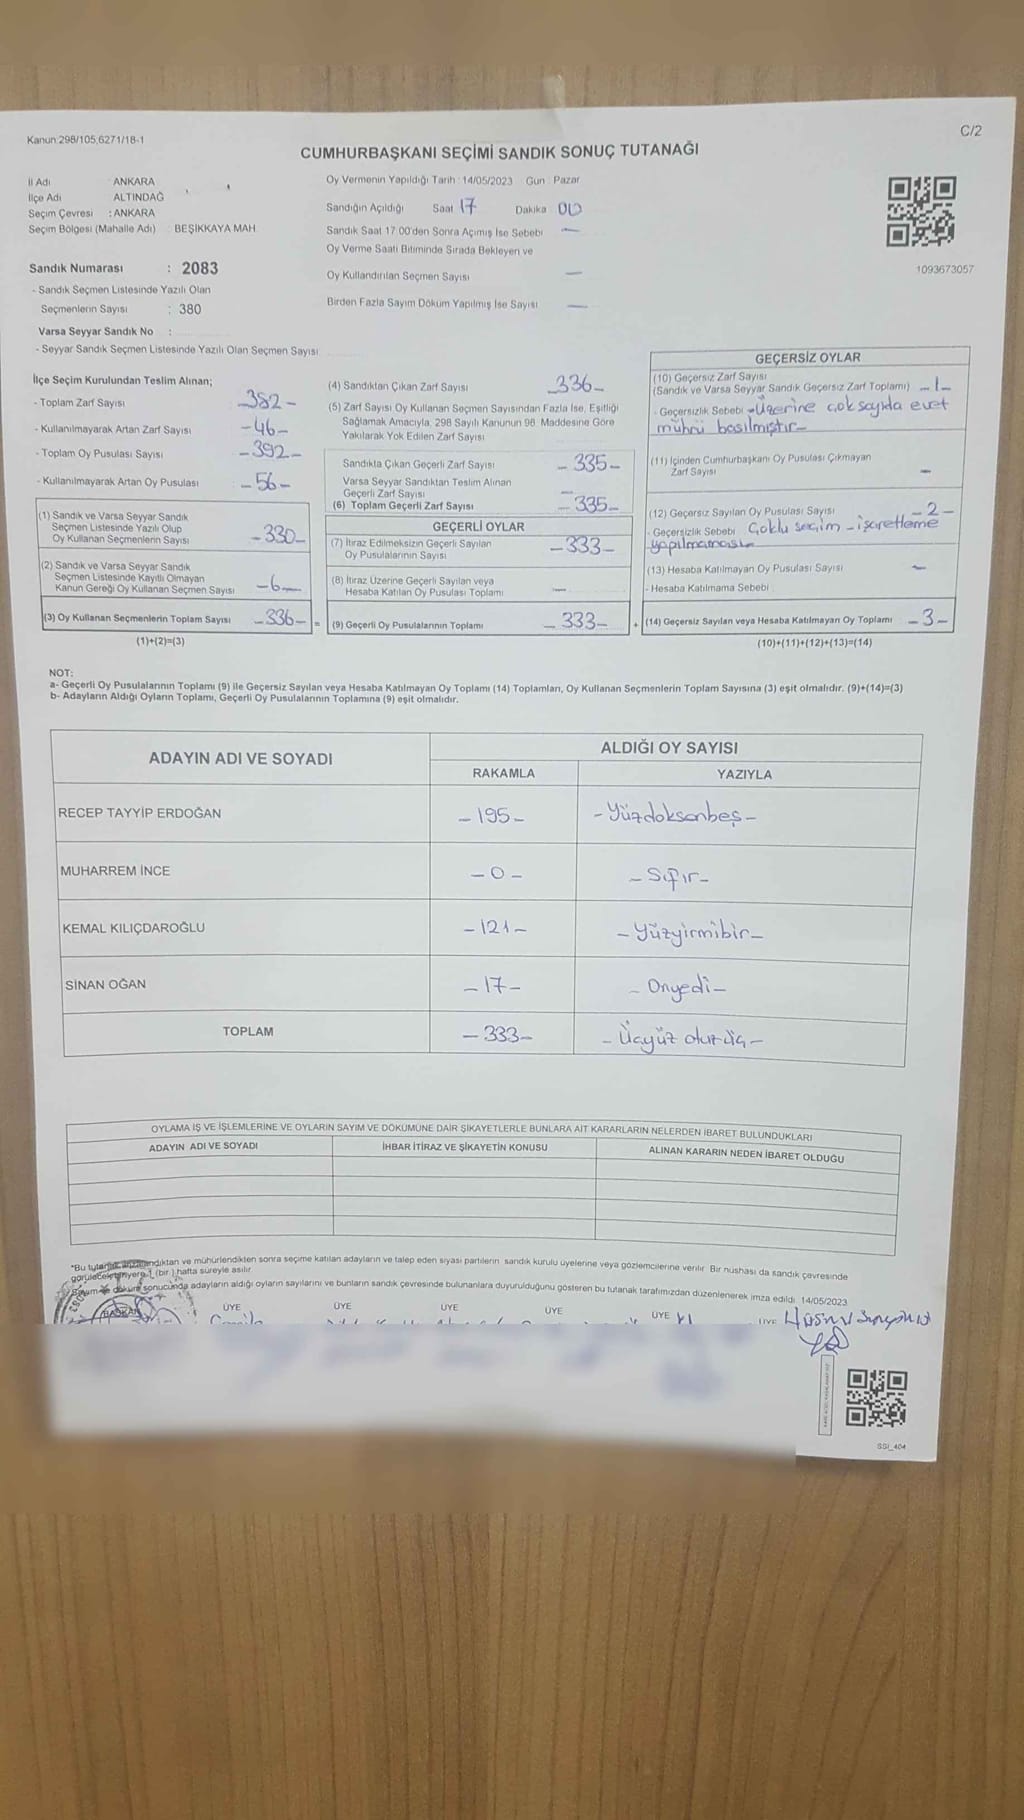 Kanun:298/105,6271/18-1
C/2
CUMHURBAŞKANI SEÇİMİ SANDIK SONUÇ TUTANAĞI
İl Adı : ANKARA
İlçe Adı : ALTINDAĞ
Seçim Çevresi : ANKARA
Seçim Bölgesi (Mahalle Adı) : BEŞİKKAYA MAH.
Sandık Numarası : 2083
- Sandık Seçmen Listesinde Yazılı Olan
Seçmenlerin Sayısı : 380
Varsa Seyyar Sandık No :
- Seyyar Sandık Seçmen Listesinde Yazılı Olan Seçmen Sayısı
Oy Vermenin Yapıldığı Tarih : 14/05/2023 Gün : Pazar
Sandığın Açıldığı Saat 17 Dakika 00
Sandık Saat 17.00'den Sonra Açılmış İse Sebebi —
Oy Verme Saati Bitiminde Sırada Bekleyen ve
Oy Kullandırılan Seçmen Sayısı —
Birden Fazla Sayım Döküm Yapılmış İse Sayısı —
1093673057
İlçe Seçim Kurulundan Teslim Alınan;
- Toplam Zarf Sayısı -382-
- Kullanılmayarak Artan Zarf Sayısı -46-
- Toplam Oy Pusulası Sayısı -392-
- Kullanılmayarak Artan Oy Pusulası -56-
(1) Sandık ve Varsa Seyyar Sandık
Seçmen Listesinde Yazılı Olup
Oy Kullanan Seçmenlerin Sayısı -330-
(2) Sandık ve Varsa Seyyar Sandık
Seçmen Listesinde Kayıtlı Olmayan
Kanun Gereği Oy Kullanan Seçmen Sayısı -6-
(3) Oy Kullanan Seçmenlerin Toplam Sayısı -336- =
(1)+(2)=(3)
(4) Sandıktan Çıkan Zarf Sayısı -336-
(5) Zarf Sayısı Oy Kullanan Seçmen Sayısından Fazla İse, Eşitliği
Sağlamak Amacıyla, 298 Sayılı Kanunun 98. Maddesine Göre
Yakılarak Yok Edilen Zarf Sayısı
Sandıkta Çıkan Geçerli Zarf Sayısı -335-
Varsa Seyyar Sandıktan Teslim Alınan
Geçerli Zarf Sayısı —
(6) Toplam Geçerli Zarf Sayısı -335-
GEÇERLİ OYLAR
(7) İtiraz Edilmeksizin Geçerli Sayılan
Oy Pusulalarının Sayısı -333-
(8) İtiraz Üzerine Geçerli Sayılan veya
Hesaba Katılan Oy Pusulası Toplamı —
(9) Geçerli Oy Pusulalarının Toplamı -333- +
GEÇERSİZ OYLAR
(10) Geçersiz Zarf Sayısı
(Sandık ve Varsa Seyyar Sandık Geçersiz Zarf Toplamı) -1-
- Geçersizlik Sebebi -Üzerine çok sayıda evet
mührü basılmıştır-
(11) İçinden Cumhurbaşkanı Oy Pusulası Çıkmayan
Zarf Sayısı —
(12) Geçersiz Sayılan Oy Pusulası Sayısı -2-
- Geçersizlik Sebebi Çoklu seçim - işaretleme
yapılmaması-
(13) Hesaba Katılmayan Oy Pusulası Sayısı —
- Hesaba Katılmama Sebebi
(14) Geçersiz Sayılan veya Hesaba Katılmayan Oy Toplamı -3-
(10)+(11)+(12)+(13)=(14)
NOT:
a- Geçerli Oy Pusulalarının Toplamı (9) ile Geçersiz Sayılan veya Hesaba Katılmayan Oy Toplamı (14) Toplamları, Oy Kullanan Seçmenlerin Toplam Sayısına (3) eşit olmalıdır. (9)+(14)=(3)
b- Adayların Aldığı Oyların Toplamı, Geçerli Oy Pusulalarının Toplamına (9) eşit olmalıdır.
ADAYIN ADI VE SOYADI ALDIĞI OY SAYISI
RAKAMLA YAZIYLA
RECEP TAYYİP ERDOĞAN -195- -Yüzdoksanbeş-
MUHARREM İNCE -0- -Sıfır-
KEMAL KILIÇDAROĞLU -121- -Yüzyirmibir-
SİNAN OĞAN -17- -Onyedi-
TOPLAM -333- -Üçyüz otuz üç-
OYLAMA İŞ VE İŞLEMLERİNE VE OYLARIN SAYIM VE DÖKÜMÜNE DAİR ŞİKAYETLERLE BUNLARA AİT KARARLARIN NELERDEN İBARET BULUNDUKLARI
ADAYIN ADI VE SOYADI İHBAR İTİRAZ VE ŞİKAYETİN KONUSU ALINAN KARARIN NEDEN İBARET OLDUĞU
*Bu tutanak, ve mühürlendikten sonra seçime katılan adayların ve talep eden siyasi partilerin sandık kurulu üyelerine veya gözlemcilerine verilir. Bir nüshası da sandık çevresinde
görülecek bir yere 1 (bir ) hafta süreyle asılır.
Sayım ve döküm sonucunda adayların aldığı oyların sayılarını ve bunların sandık çevresinde bulunanlara duyurulduğunu gösteren bu tutanak tarafımızdan düzenlenerek imza edildi. 14/05/2023
BAŞKAN ÜYE ÜYE ÜYE ÜYE ÜYE ÜYE
SSI_404